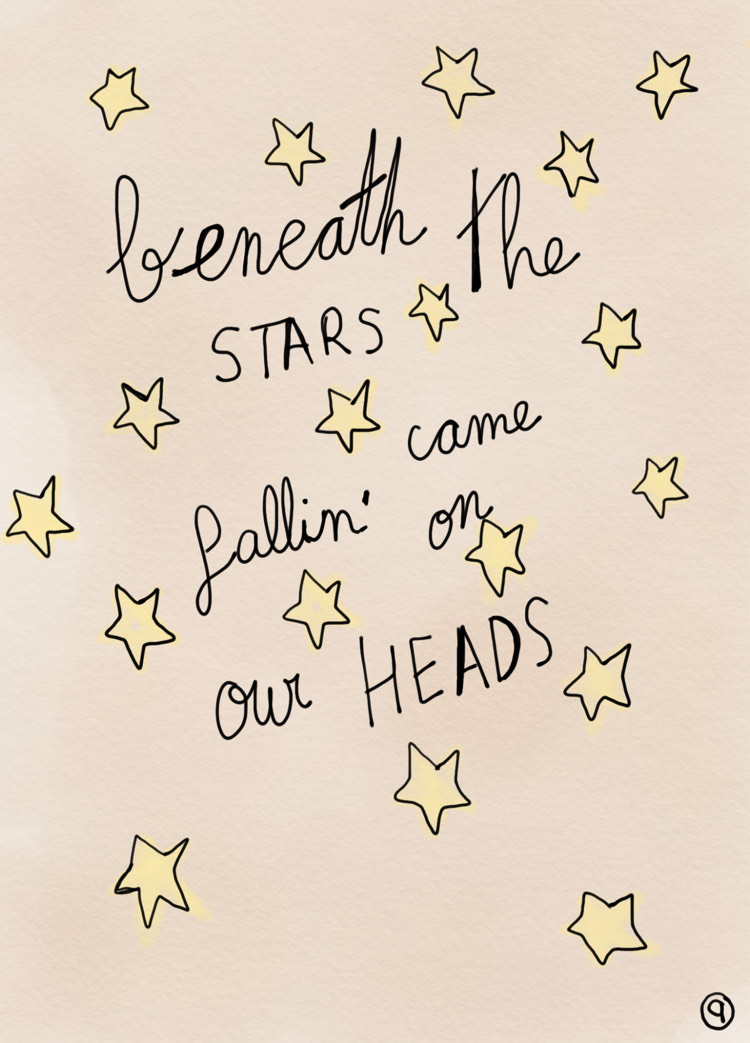 beneath the
STARS
came
fallin' on
our HEADS